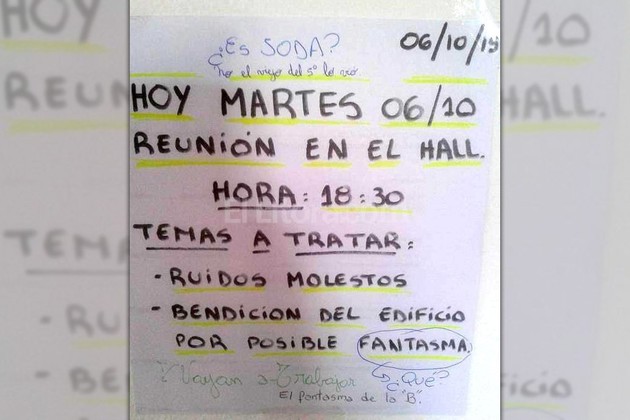 ¿Es SODA?
06/10/15
No el viejo del 5º lo vió.
HOY MARTES 06/10
REUNIÓN EN EL HALL.
HORA: 18:30
El Litoral.com
TEMAS A TRATAR:
- RUIDOS MOLESTOS
- BENDICION DEL EDIFICIO
POR POSIBLE FANTASMA.
Vayan a Trabajar
¿Qué?
El fantasma de la "B".